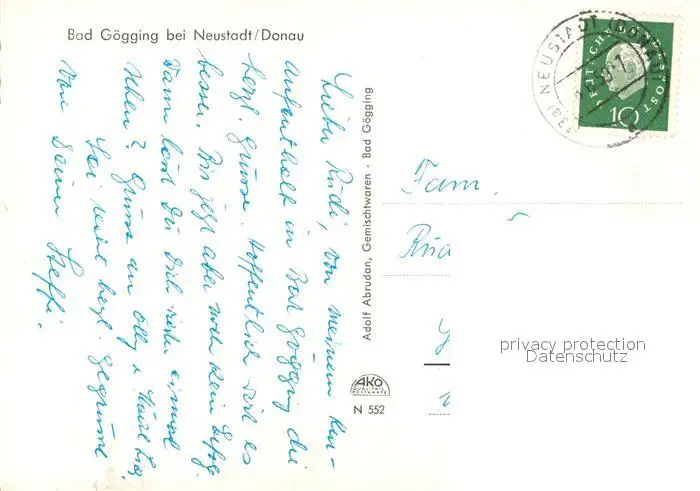 Bad Gögging bei Neustadt/Donau
Liebe Rudi, von meinem Kur-
Aufenthalt in Bad Gögging die
herzl. Grüsse. Hoffentlich wird es
besser. Bis jetzt aber noch kein Erfolg.
Wann lässt Du Dich mal
sehen? Gruss an Olly &
Sei recht herzl. gegrüsst
von Deiner Steffi.
Adolf Abrudan, Gemischtwaren · Bad Gögging
AKO
QUALITÄTS
POSTKARTE
N 552
NEUSTADT (DONAU)
DEUTSCHE BUNDESPOST
10
Fam.
privacy protection
Datenschutz